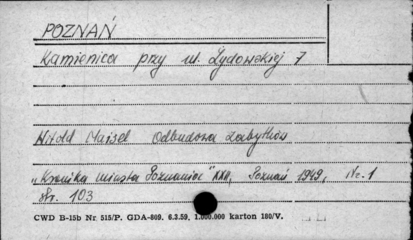 POZNAŃ
Kamienica przy ul. Żydowskiej 7
Witold Maisel Odbudowa zabytków
„Kronika miasta Poznania" XXII, Poznań 1949, Nr. 1
str. 103
CWD B-15b Nr 515/P. GDA-809. 6.3.59, 1.000.000 karton 180/V.